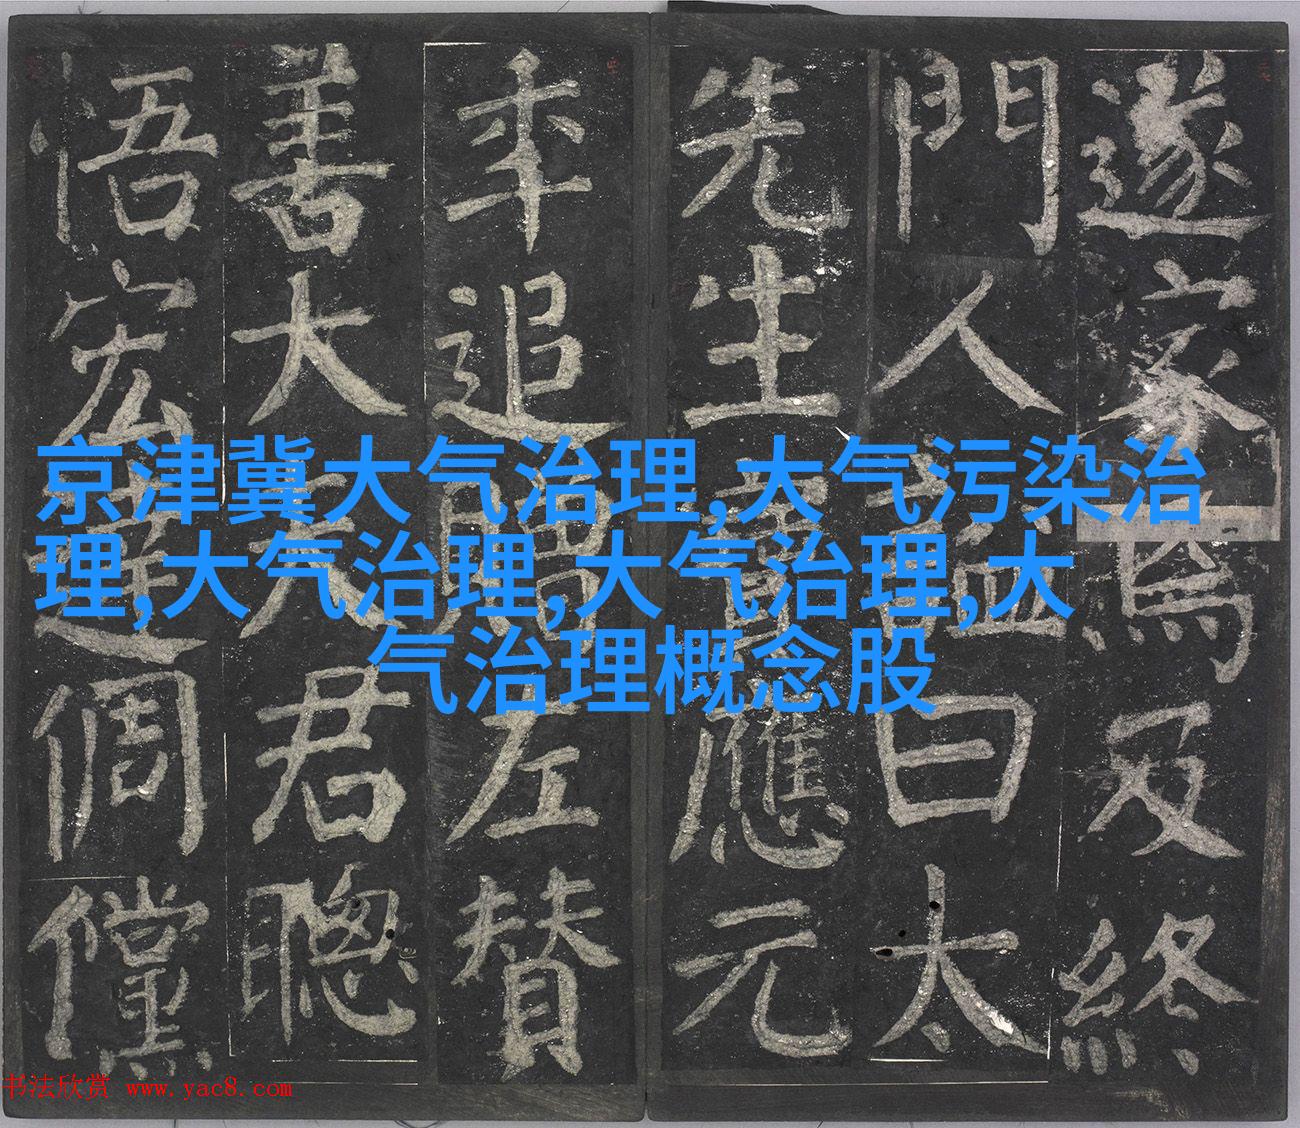 遂家焉及終
門人謚曰太
先生寶應元
年追贈左贊
善大夫君聰
悟宏達倜儻
京津冀大气治理,大气污染治
理,大气治理,大气治理,大
气治理概念股
书法欣赏 www.yac8.com